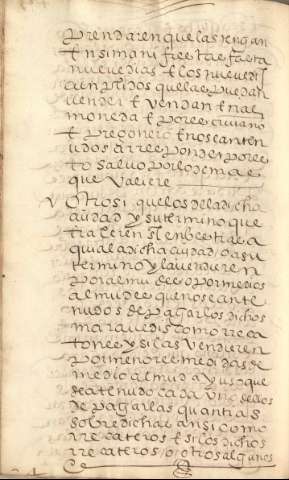 prendaren que las tengan
en si manifiestas fasta
nueve dias e los nueve dias
cunplidos que las puedan
vender e vendan en al
moneda e por escrivano
e pregonero e no sean ten
udos a responder por es
to salvo por lo demas
que valiere
Otrosi que los de la dicha
ciudad y su termino que
traxeren
a qual a dicha ciudad o a su
termino y la vendieren
por almudes o por medios
almudes que no sean te
nudos de pagar los dichos
maravedis como rreca
tones y si las vendieren
por menores medidas de
medio almud ayuso que
sea tenudo cada uno dellos
de pagar las quantias
sobre dichas ansi como
rrecateros e si los dichos
rrecateros o otros algunos